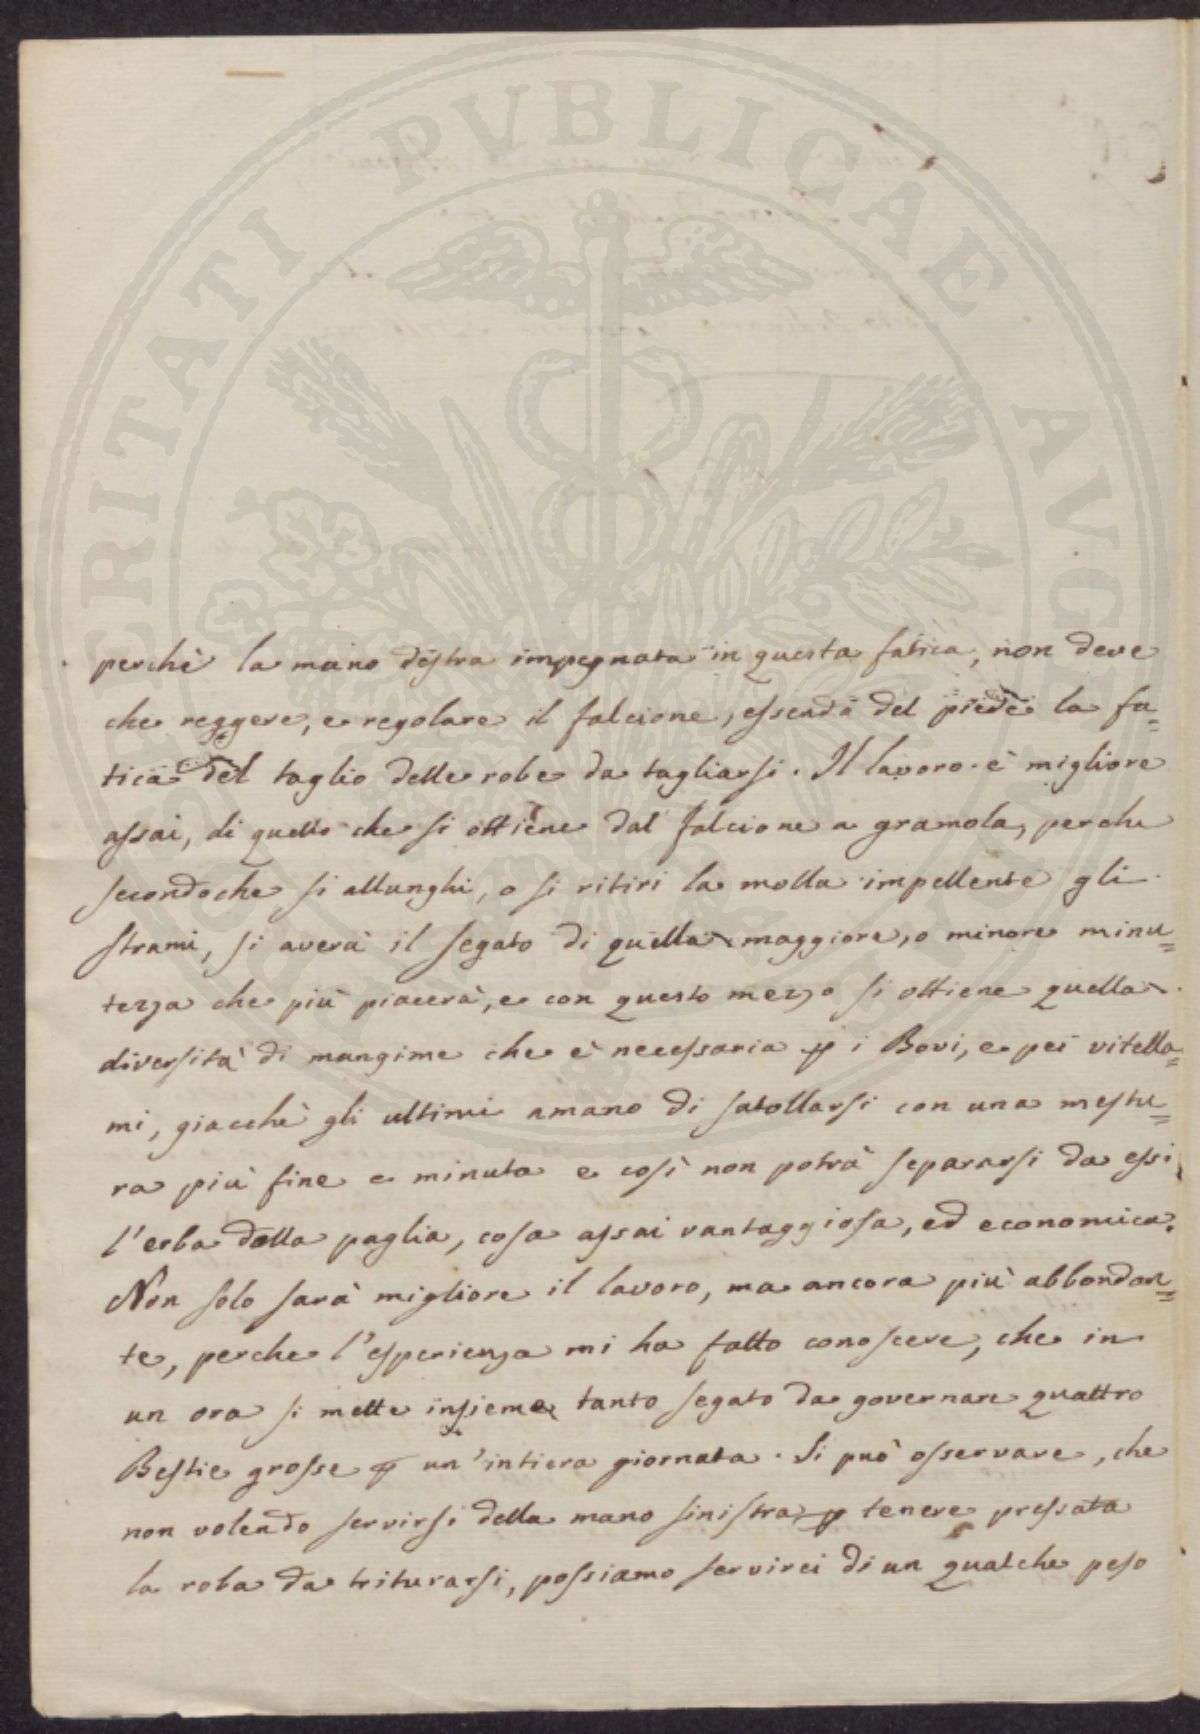 PROSPERITATI PUBLICAE AVGENDAE
perchè la mano destra impegnata in questa fatica, non deve
che reggere, e regolare il falcione, essendo del piede la fa=
tica del taglio delle robe da tagliarsi. Il lavoro è migliore
assai, di quello che si ottiene dal falcione a gramola, perche
secondoche si allunghi, o si ritiri la molla impellente gli
strami, si averà il segato di quella maggiore, o minore minu=
tezza che più piacerà, e con questo mezzo si ottiene quella
diversità di mangime che è necessaria p i Bovi, e pei vitella=
mi, giacchè gli ultimi amano di satollarsi con una mestu=
ra più fine e minuta e così non potrà separarsi da essi
l'erba dalla paglia, cosa assai vantaggiosa, ed economica.
Non solo sarà migliore il lavoro, ma ancora più abbondan=
te, perche l'esperienza mi ha fatto conoscere, che in
un ora si mette insieme tanto segato da governare quattro
Bestie grosse p un'intiera giornata. Si può osservare, che
non volendo servirsi della mano sinistra p tenere pressata
la roba da triturarsi, possiamo servirci di un qualche peso